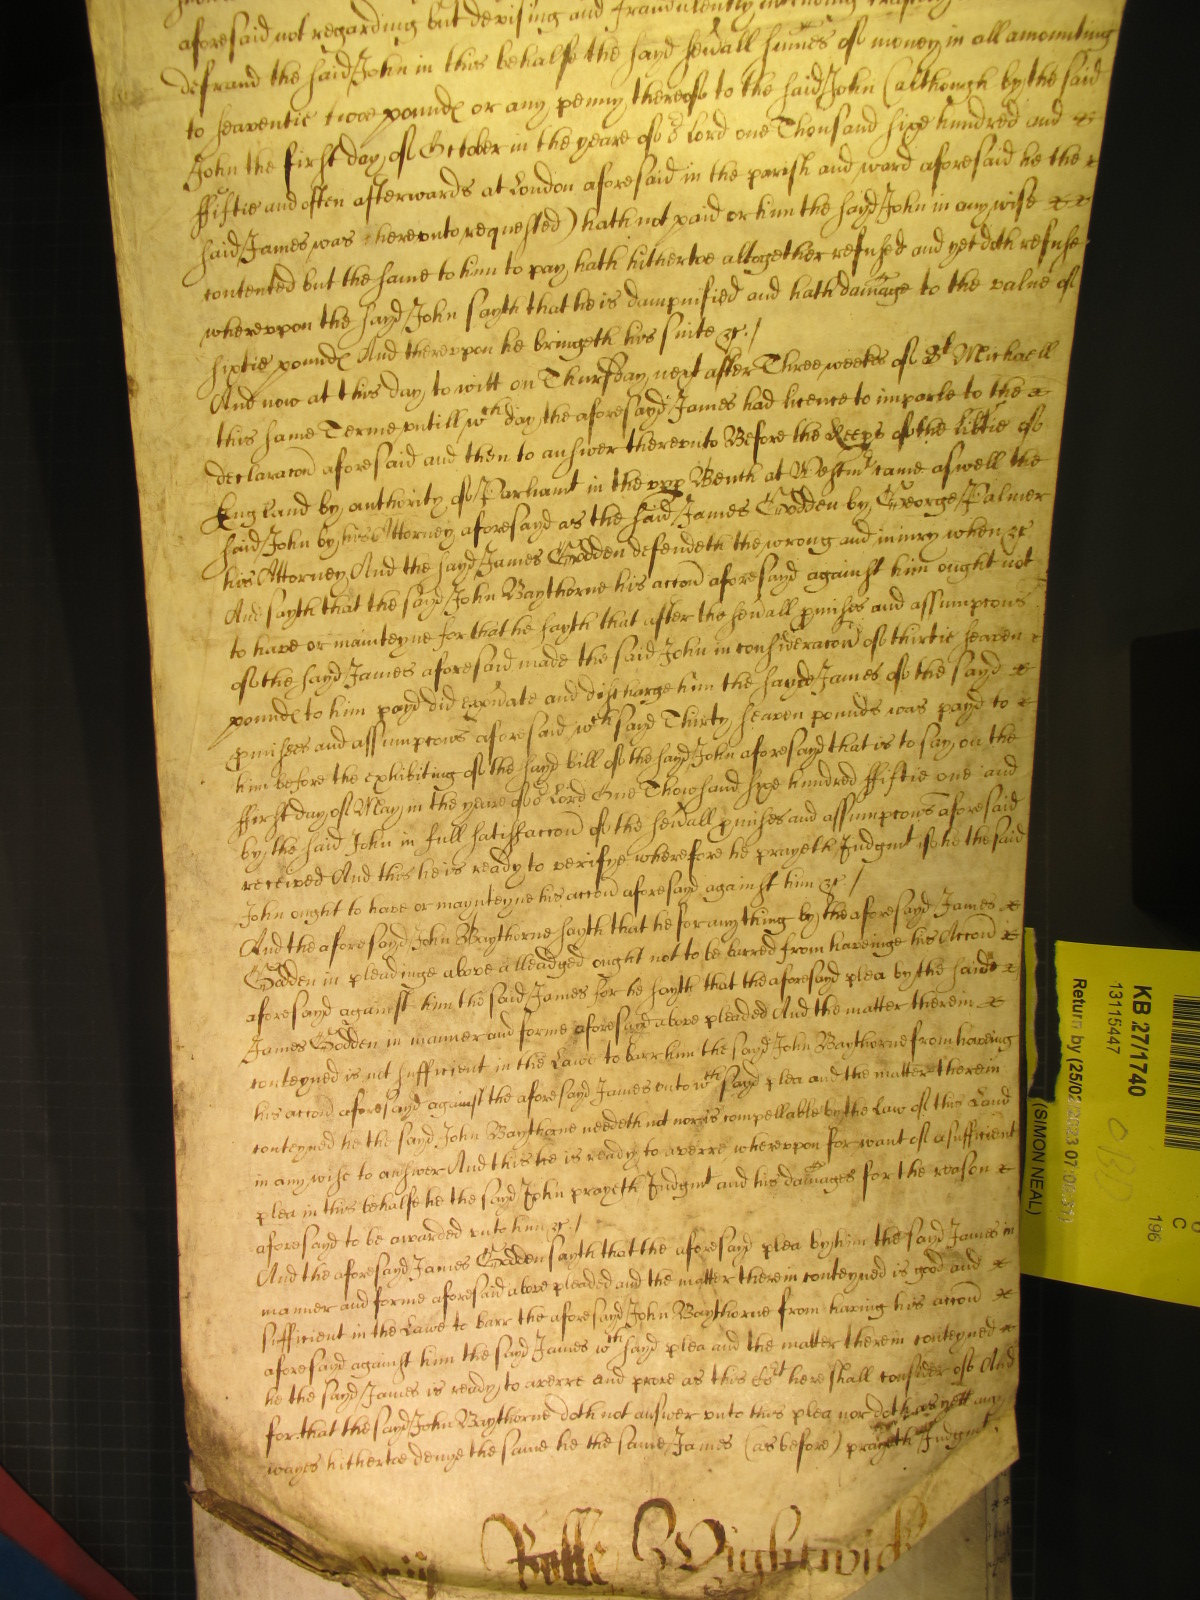 aforesaid not regarding but devising and fraudulently intending
defraud the said John in this behalfe the sayd sevall sumes of money in all amounting
to seaventie twoe pound or any penny thereof to the said John (although by the said
John the first day of October in the yeare of o Lord one Thousand sixe hundred and
ffiftie and often afterwards at London aforesaid in the parish and ward aforesaid he the
said James was thereunto requested) hath not paid or him the sayd John in any wise
contented but the same to him to pay hath hithertoe altogether refused and yet doth refuse
whereupon the sayd John sayth that he is dampnified and hath damage to the value of
sixtie pound And thereupon he bringeth his suite &c./
And now at this day to witt on Thursday next after Three weekes of St Michaell
this same Terme untill wch day the aforesayd James had licence to imparle to the
declaracon aforesaid and then to answer thereunto Before the Keeps of the libtie of
England by authority of Parliamt in the upp Bench at Westmr came aswell the
said John by his Attorney aforesayd as the said James Godden by George Palmer
his Attorney And the sayd James Godden defendeth the wrong and iniury when &c
And sayth that the sayd John Baythorne his accon aforesayd against him ought not
to have or mainteyne for that he sayth that after the sevall pmises and assumpcons
of the sayd James aforesaid made the said John in consideracon of thirtie seaven
pound to him payd did exonerate and discharge him the sayd James of the sayd
pmises and assumpcons aforesaid wch sayd Thirty seaven pounds was payd to
him before the exhibiting of the sayd bill of the sayd John aforesayd that is to say on the
ffirst day of May in the yeare of o Lord One Thowsand sixe hundred ffiftie one and
by the said John in full satisfaccon of the sevall pmises and assumpcons aforesaid
received And this he is ready to verifye wherefore he prayeth Iudgmt if he the said
John ought to have or maynteyne his accon aforesayd against him &c /
And the aforesayd John Baythorne sayth that he for any thing by the aforesayd James
Godden in pleadinge above alleadged ought not to be barred from haveinge his Accon
aforesayd against him the said James for he sayth that the aforesayd plea by the said
James Godden in manner and forme aforesayd above pleaded And the matter therein
conteyned is not sufficient in the Lawe to barr him the sayd John Baythorne from haveing
his accon aforesayd against the aforesayd James unto wch sayd plea and the matter therein
conteyned he the sayd John Baythorne needeth not nor is compellable by the Law of this Land
in any wise to answer And this he is ready to averre whereupon for want of a sufficient
plea in this behalfe he the sayd John prayeth Iudgmt and his damages for the reason
aforesayd to be awarded unto him &c./
And the aforesayd James Godden sayth that the aforesayd plea by him the sayd James in
manner and forme aforesaid above pleaded and the matter therein conteyned is good and
sufficient in the Lawe to barr the aforesayd John Baythorne from having his accon
aforesayd against him the sayd James wch sayd plea and the matter therein conteyned
he the sayd James is ready to averre and prove as this Cort here shall consider of And
for that the sayd John Baythorne doth not answer unto this plea nor doth as yett any
wayes hithertoe denye the same he the same James (as before) prayeth Iudgmt
Rolle Wightwick
KB 27/1740
13115447
Return by (25/02/2023 07:00:31)
(SIMON NEAL)
OBD
196
C